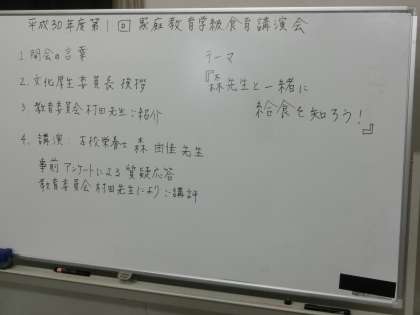 平成30年度第1回 家庭教育学級食育講演会
1. 開会の言葉
2. 文化厚生委員長 挨拶
3. 教育委員会 村田先生ご紹介
4. 講演: 本校栄養士 森 由佳 先生
事前アンケートによる質疑応答
教育委員会 村田先生よりご講評
テーマ
『森先生と一緒に
給食を知ろう!』